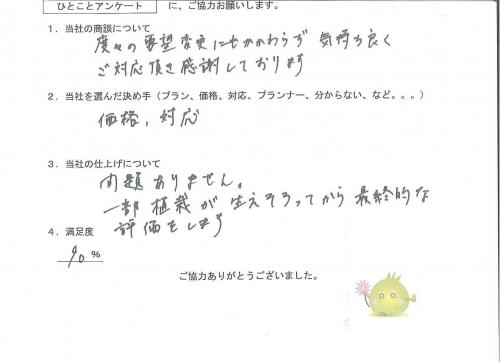 ひとことアンケート に、ご協力お願いします。
1．当社の商談について
度々の要望変更にもかかわらず 気持ち良く
ご対応頂き感謝しております
2．当社を選んだ決め手（プラン、価格、対応、プランナー、分からない、など。。。）
価格，対応
3．当社の仕上げについて
問題ありません。
一部植栽が生えそろってから最終的な
評価をします
4．満足度
90 %
ご協力ありがとうございました。